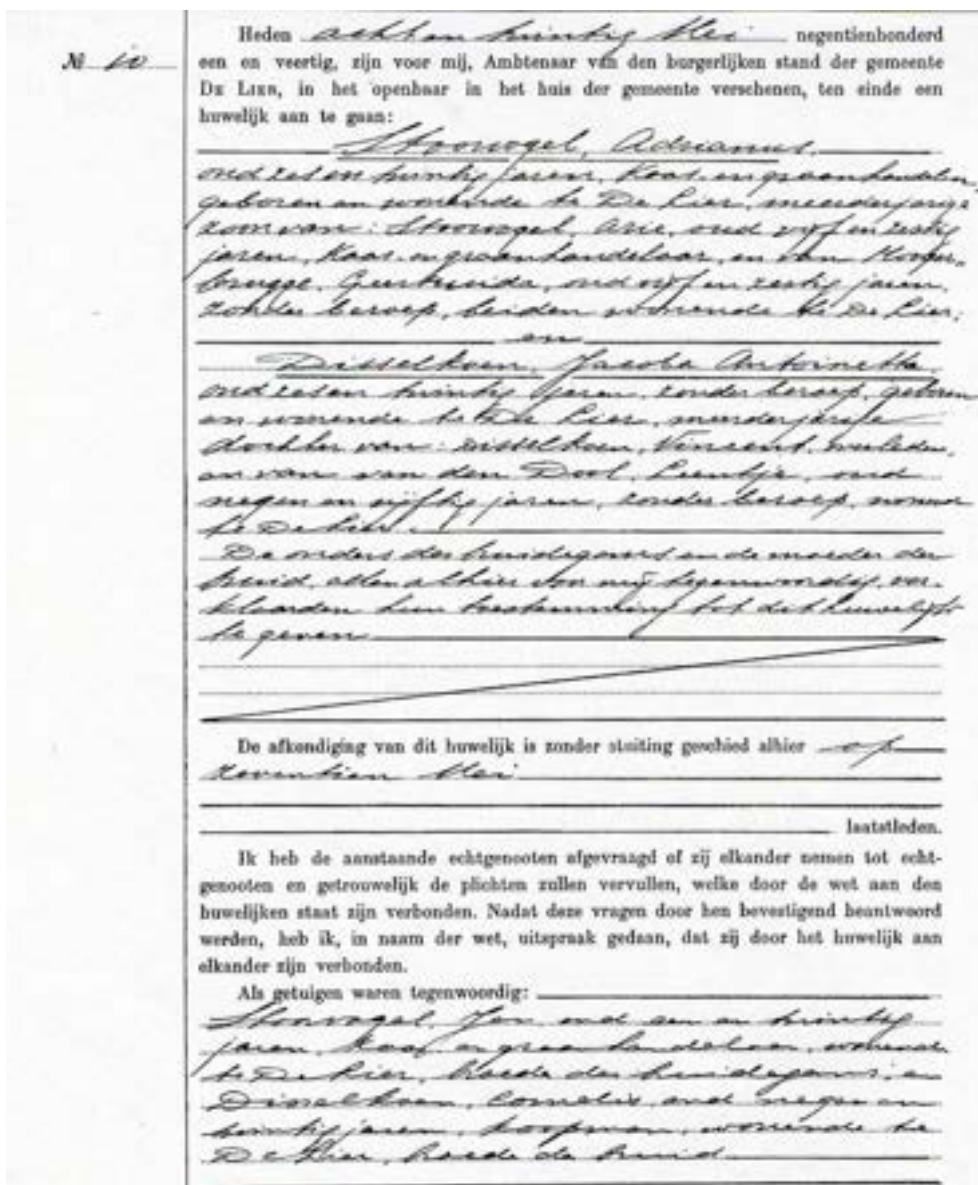 Heden acht en twintig Mei negentienhonderd
№ 10
een en veertig, zijn voor mij, Ambtenaar van den burgerlijken stand der gemeente
De Lier, in het openbaar in het huis der gemeente verschenen, ten einde een
huwelijk aan te gaan:
Stoorvogel, Adrianus,
oud zes en twintig jaren, kaas- en graanhandelaar,
geboren en wonende te De Lier, meerderjarige
zoon van: Stoorvogel, Arie, oud vijf en zestig
jaren, kaas- en graanhandelaar, en van
brugge, Geertruida, oud vijf en zestig jaren,
zonder beroep, beiden wonende te De Lier;
en
Disselkoen, Jacoba Antoinetta,
oud zes en twintig jaren, zonder beroep, geboren
en wonende te De Lier, meerderjarige
dochter van: Disselkoen, Vincent, overleden,
en van van den Dool, Leentje, oud
negen en vijftig jaren, zonder beroep, wonende
te De Lier.
De ouders des bruidegoms en de moeder der
bruid, allen alhier voor mij tegenwoordig, ver-
klaarden hun toestemming tot dit huwelijk
te geven
De afkondiging van dit huwelijk is zonder stuiting geschied alhier op
zeventien Mei
laatstleden.
Ik heb de aanstaande echtgenooten afgevraagd of zij elkander nemen tot echt-
genooten en getrouwelijk de plichten zullen vervullen, welke door de wet aan den
huwelijken staat zijn verbonden. Nadat deze vragen door hen bevestigend beantwoord
werden, heb ik, in naam der wet, uitspraak gedaan, dat zij door het huwelijk aan
elkander zijn verbonden.
Als getuigen waren tegenwoordig:
Stoorvogel, Jan, oud een en twintig
jaren, kaas- en graanhandelaar, wonende
te De Lier, broeder des bruidegoms, en
Disselkoen, Cornelis, oud negen en
twintig jaren, koopman, wonende te
De Lier, broeder der bruid